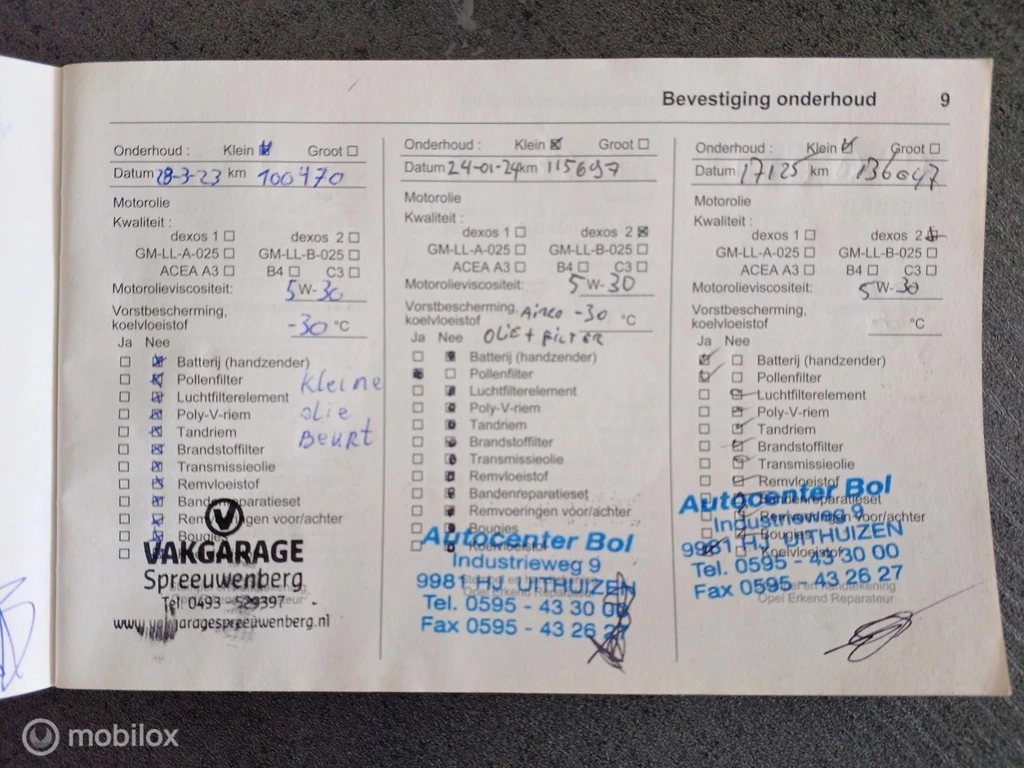 Bevestiging onderhoud 9
Onderhoud : Klein Groot
Datum 28-3-23 km 100470
Motorolie
Kwaliteit :
dexos 1 dexos 2
GM-LL-A-025 GM-LL-B-025
ACEA A3 B4 C3
Motorolieviscositeit: 5 W-30
Vorstbescherming,
koelvloeistof -30 °C
Ja Nee
Batterij (handzender)
Pollenfilter Kleine
Luchtfilterelement
Poly-V-riem olie
Tandriem Beurt
Brandstoffilter
Transmissieolie
Remvloeistof
Bandenreparatieset
Remvoeringen voor/achter
Bougies
VAKGARAGE
Spreeuwenberg
Tel. 0493 - 529397
www.vakgaragespreeuwenberg.nl
Onderhoud : Klein Groot
Datum 24-01-24 km 115697
Motorolie
Kwaliteit :
dexos 1 dexos 2
GM-LL-A-025 GM-LL-B-025
ACEA A3 B4 C3
Motorolieviscositeit: 5 W-30
Vorstbescherming, Airco -30
koelvloeistof °C
Ja Nee OLIE + FILTER
Batterij (handzender)
Pollenfilter
Luchtfilterelement
Poly-V-riem
Tandriem
Brandstoffilter
Transmissieolie
Remvloeistof
Bandenreparatieset
Remvoeringen voor/achter
Bougies
Koelvloeistof
Autocenter Bol
Industrieweg 9
9981 HJ UITHUIZEN
Opel Erkend Reparateur
Tel. 0595 - 43 30 00
Fax 0595 - 43 26 27
Onderhoud : Klein Groot
Datum 17125 km 136047
Motorolie
Kwaliteit :
dexos 1 dexos 2
GM-LL-A-025 GM-LL-B-025
ACEA A3 B4 C3
Motorolieviscositeit: 5 W-30
Vorstbescherming,
koelvloeistof °C
Ja Nee
Batterij (handzender)
Pollenfilter
Luchtfilterelement
Poly-V-riem
Tandriem
Brandstoffilter
Transmissieolie
Remvloeistof
Bandenreparatieset
Remvoeringen voor/achter
Bougies
Koelvloeistof
Autocenter Bol
Industrieweg 9
9981 HJ UITHUIZEN
Tel. 0595 - 43 30 00
Fax 0595 - 43 26 27
Opel Erkend Reparateur
mobilox